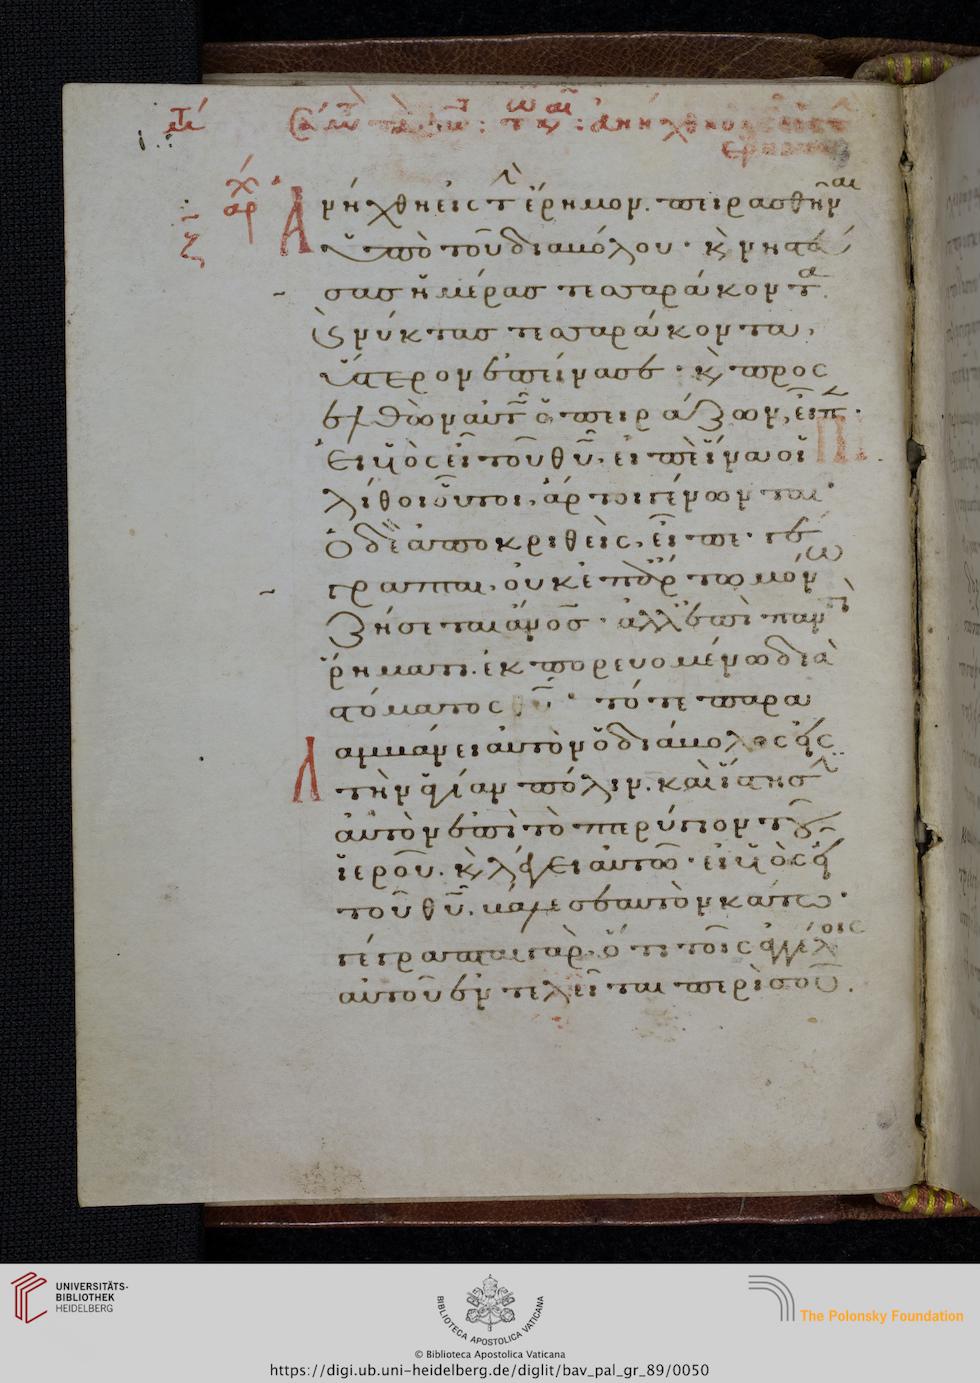 ἀνήχθη εἰς τ ἔρημον. πειρασθῆναι
ὑπὸ τοῦ διαβόλου · κ νηστεύ
σας ἡμέρας τεσσαράκοντα.
κ νύκτας τεσσαράκοντα,
ὕστερον ἐπείνασε · κ προσ
ελθὼν αὐτῶ ὁ πειράζων, εἶπ ·
Εἰ υἱὸς εἶ τοῦ θυ, εἰπὲ ἵνα οἱ
λίθοι οὗτοι, ἄρτοι γένωνται ·
Ὁ δὲ ἀποκριθεὶς, εἶπε · γέ
γραπται, οὐκ ἐπ ἄρτω μόνω
ζήσεται ἄνος · ἀλλ' ἐπὶ παντὶ
ῥήματι ἐκπορευομένω διὰ
στόματος θυ · τότε παρα
λαμβάνει αὐτὸν ὁ διάβολος εἰς
τὴν ἁγίαν πόλιν. καὶ ἵστησιν
αὐτὸν ἐπὶ τὸ πτερύγιον τοῦ
ἱεροῦ. κ λέγει αὐτῶ · εἰ υἱὸς εἶ
τοῦ θυ, βάλε σεαυτὸν κάτω ·
γέγραπται γὰρ, ὅτι τοῖς ἀγγέλοις
αὐτοῦ ἐντελεῖται περὶ σοῦ.
UNIVERSITÄTS-
BIBLIOTHEK
HEIDELBERG
BIBLIOTECA APOSTOLICA VATICANA
The Polonsky Foundation
© Biblioteca Apostolica Vaticana
https://digi.ub.uni-heidelberg.de/diglit/bav_pal_gr_89/0050